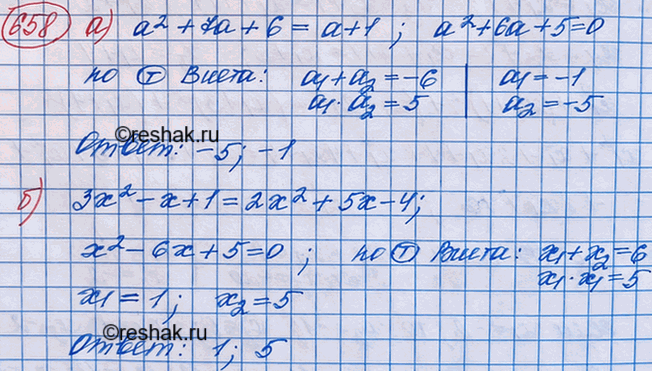 658 а) a² + 7a + 6 = a + 1 ; a² + 6a + 5 = 0
по Т Виета: a₁ + a₂ = -6 | a₁ = -1
a₁ · a₂ = 5 | a₂ = -5
©reshak.ru
Ответ: -5; -1
б) 3x² - x + 1 = 2x² + 5x - 4;
x² - 6x + 5 = 0 ; по Т Виета: x₁ + x₂ = 6
x₁ · x₁ = 5
x₁ = 1 ; x₂ = 5
©reshak.ru
Ответ: 1; 5